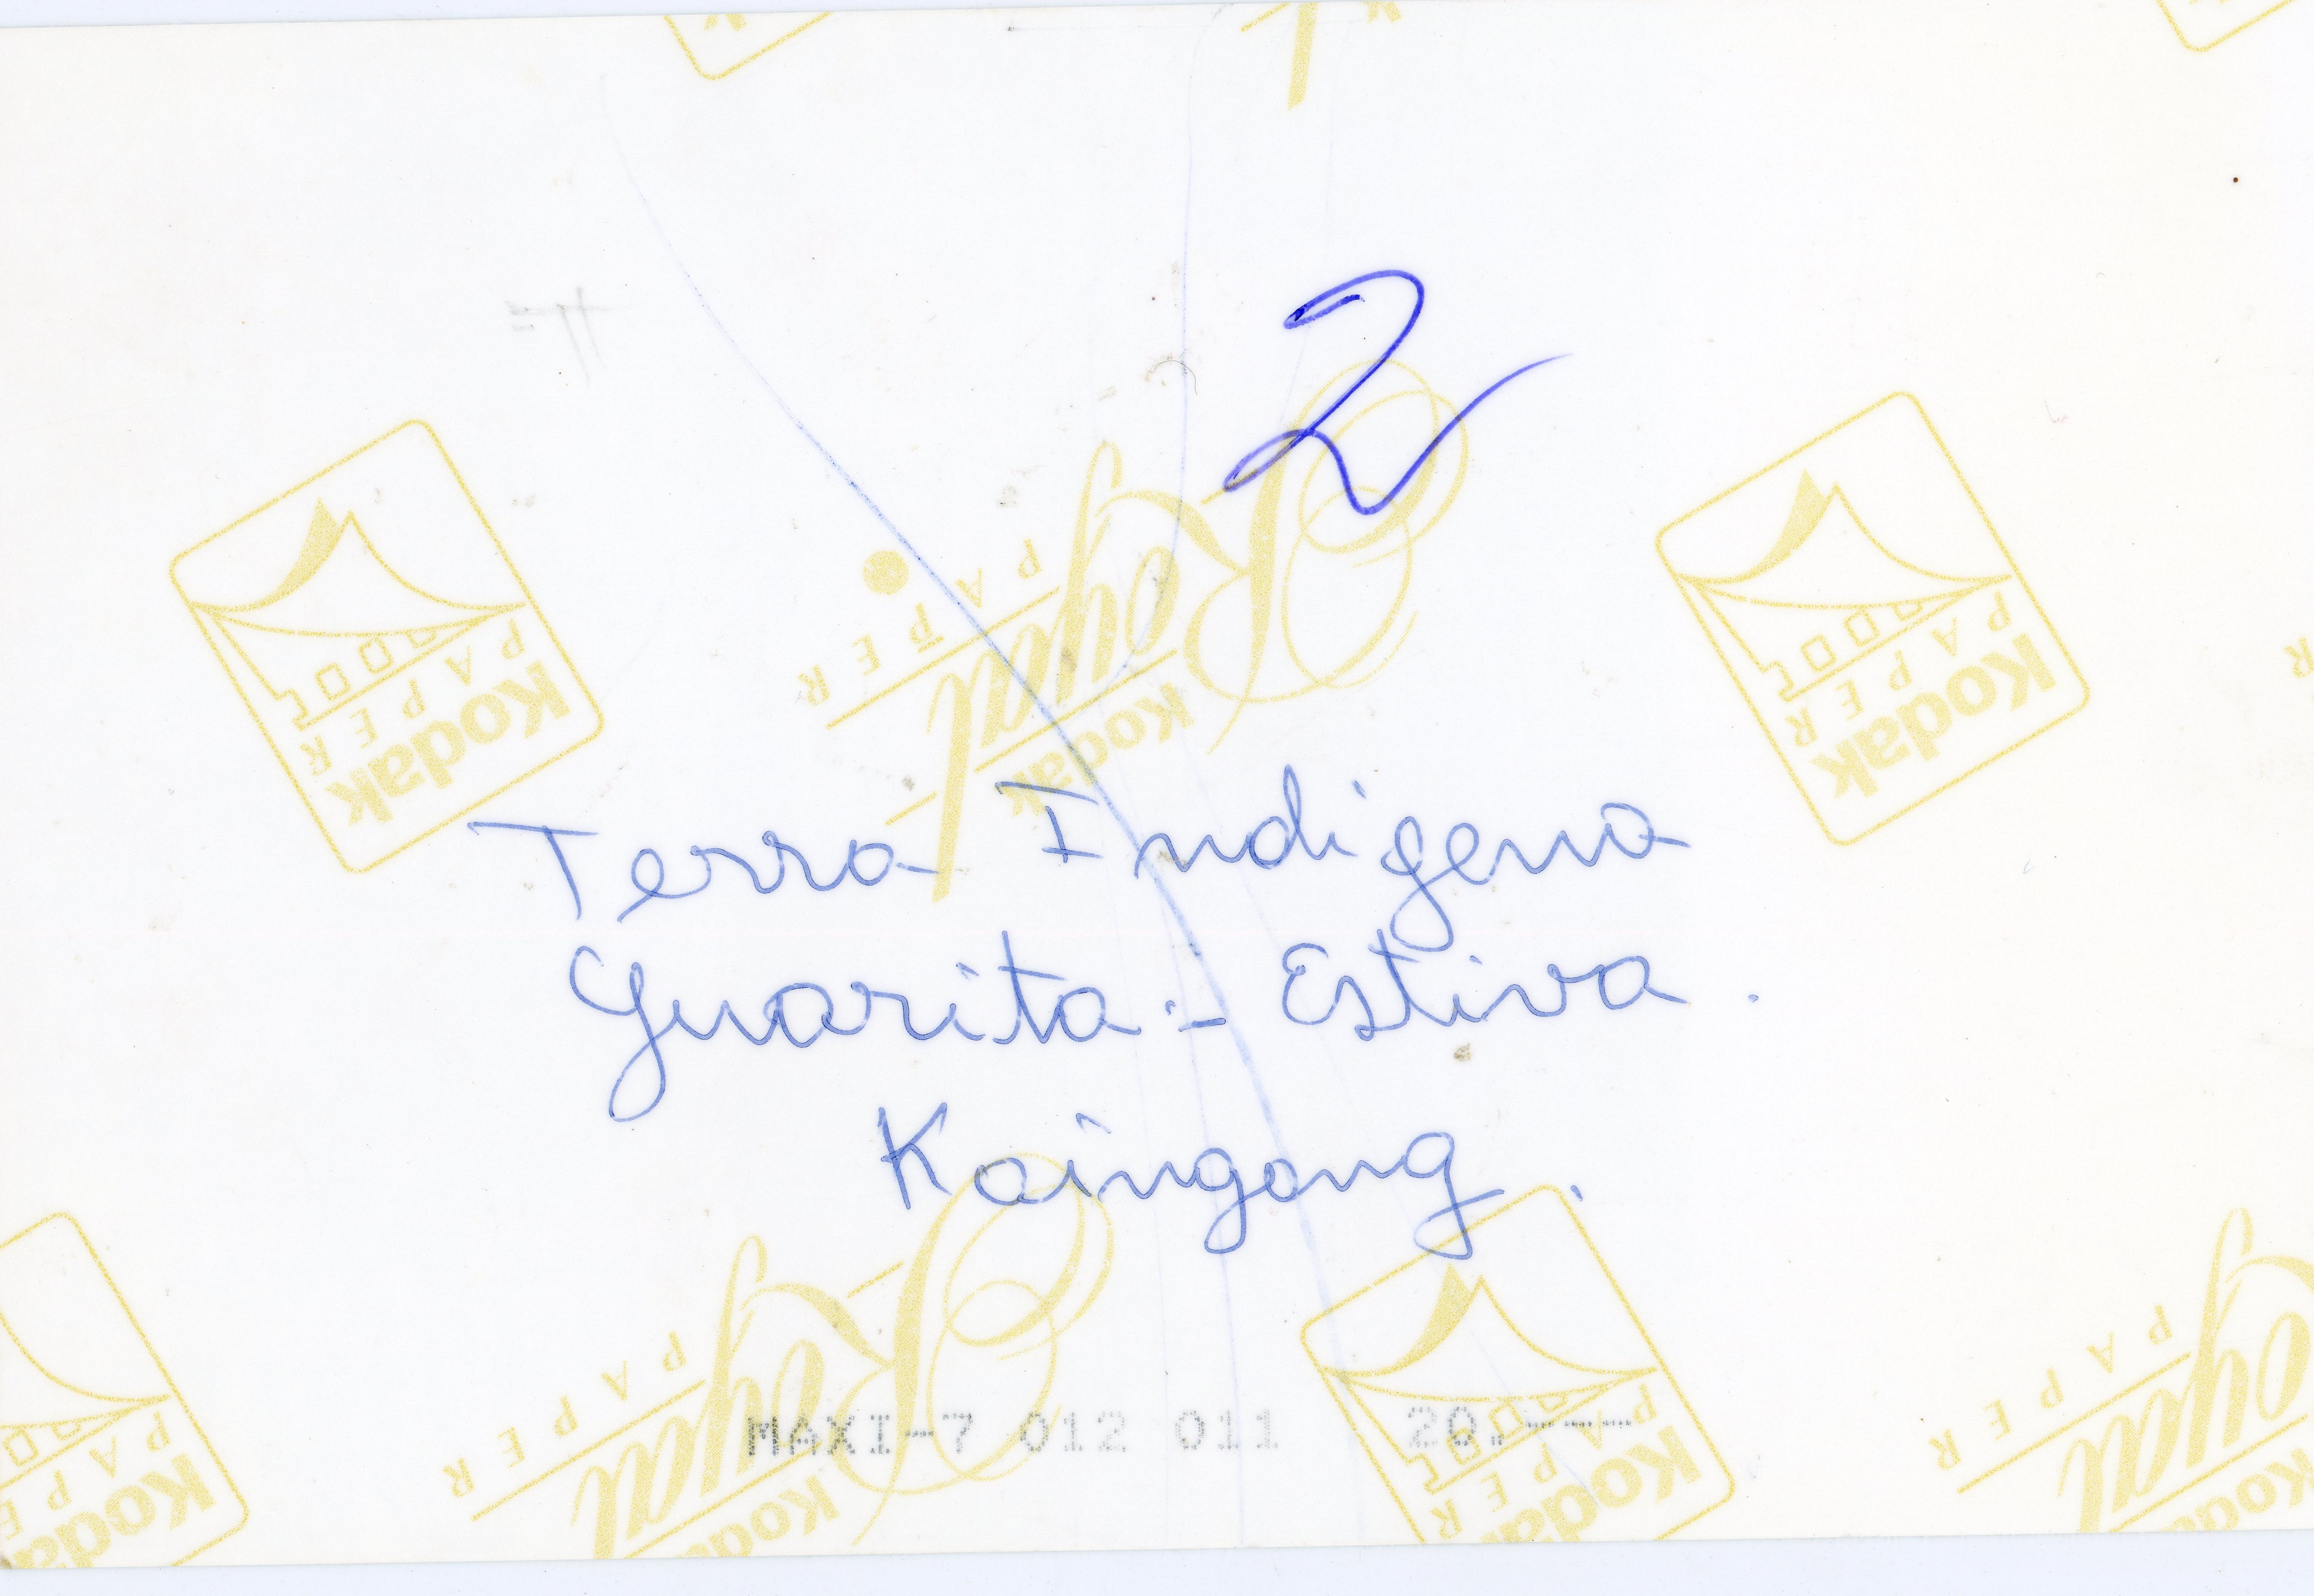 2
Terra Indígena
Guarita - Estiva.
Kaingang.
MAXI-7 012 011 20.---
Kodak
PAPER
Kodak
Royal
PAPER
Kodak
PAPER
Kodak
PAPER
Kodak
Royal
PAPER
Kodak
PAPER